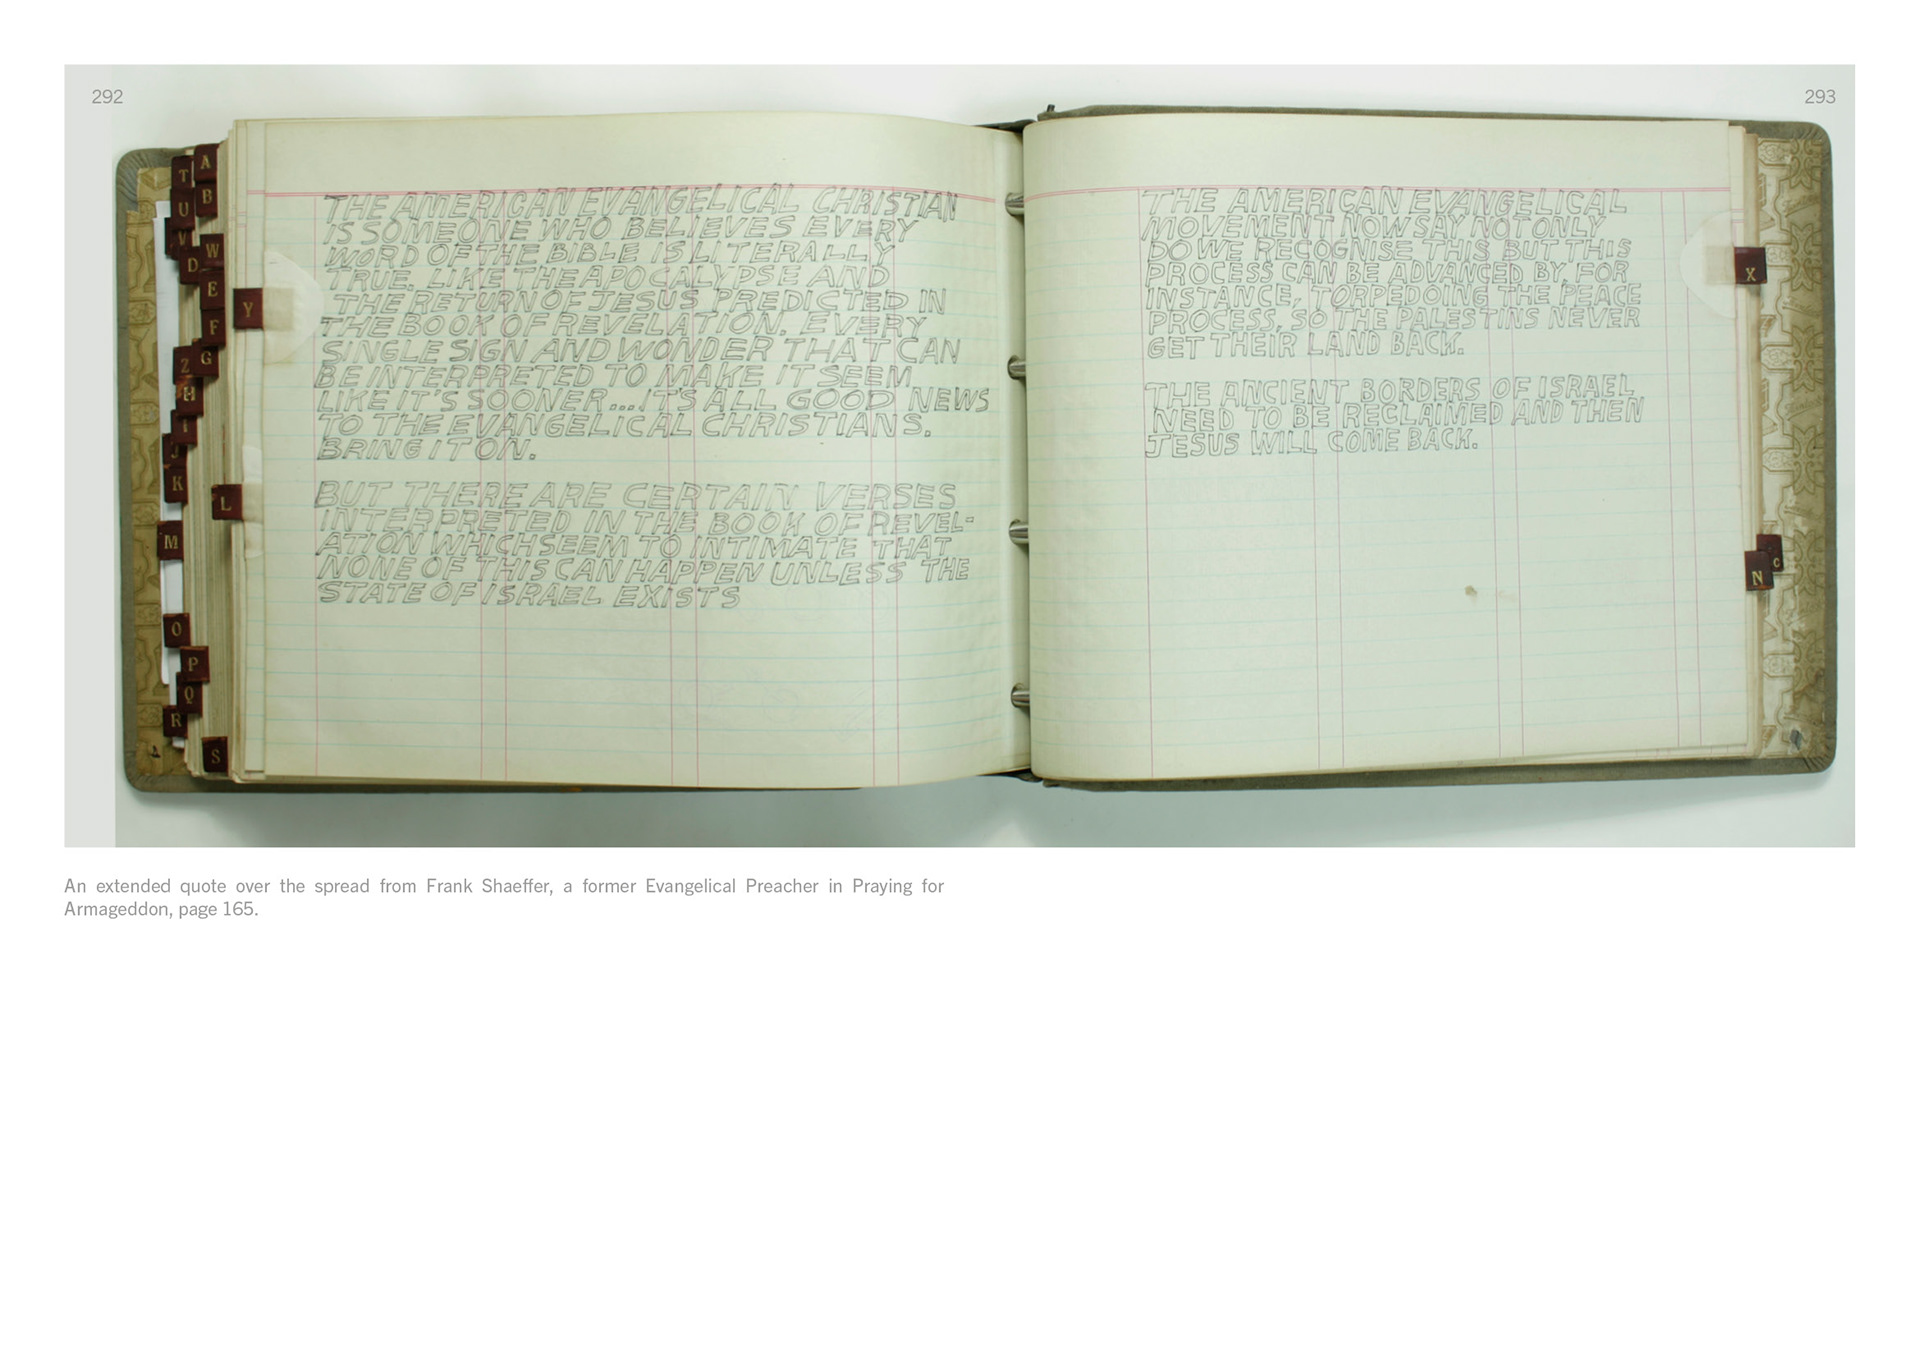 292
293
A
T
B
U
V
W
D
E
Y
F
G
Z
H
I
J
K
L
M
O
P
Q
R
S
THE AMERICAN EVANGELICAL CHRISTIAN
IS SOMEONE WHO BELIEVES EVERY
WORD OF THE BIBLE IS LITERALLY
TRUE. LIKE THE APOCALYPSE AND
THE RETURN OF JESUS PREDICTED IN
THE BOOK OF REVELATION. EVERY
SINGLE SIGN AND WONDER THAT CAN
BE INTERPRETED TO MAKE IT SEEM
LIKE IT'S SOONER... IT'S ALL GOOD NEWS
TO THE EVANGELICAL CHRISTIANS.
BRING IT ON.
BUT THERE ARE CERTAIN VERSES
INTERPRETED IN THE BOOK OF REVEL-
ATION WHICH SEEM TO INTIMATE THAT
NONE OF THIS CAN HAPPEN UNLESS THE
STATE OF ISRAEL EXISTS
THE AMERICAN EVANGELICAL
MOVEMENT NOW SAY NOT ONLY
DO WE RECOGNISE THIS BUT THIS
PROCESS CAN BE ADVANCED BY, FOR
INSTANCE, TORPEDOING THE PEACE
PROCESS, SO THE PALESTINS NEVER
GET THEIR LAND BACK.
THE ANCIENT BORDERS OF ISRAEL
NEED TO BE RECLAIMED AND THEN
JESUS WILL COME BACK.
X
C
N
An extended quote over the spread from Frank Shaeffer, a former Evangelical Preacher in Praying for
Armageddon, page 165.